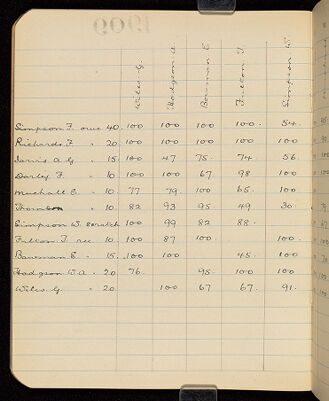 Wiles. G. Hodgson A Bowman E Fulton T. Simpson W.
Simpson F. owe 40. 100 100 100 100. 54.
Richards. F " 20 100 100 100 100 100
Jarvis A. G " 15 100 47 75. 74 56.
Darley F " 10 100 100 67 98 100
Mushall E. " 10. 77 79 100 65. 100
" 10. 82 93 95 49 30.
Simpson W. scratch 100 99 82 88.
Fulton T. rec 10. 100 87 100. 100.
Bowman E. " 15. 100 100 45. 100
Hodgson W. A " 20 76. 95. 100 100
Wiles. G. " 20. 100 67 67. 91.